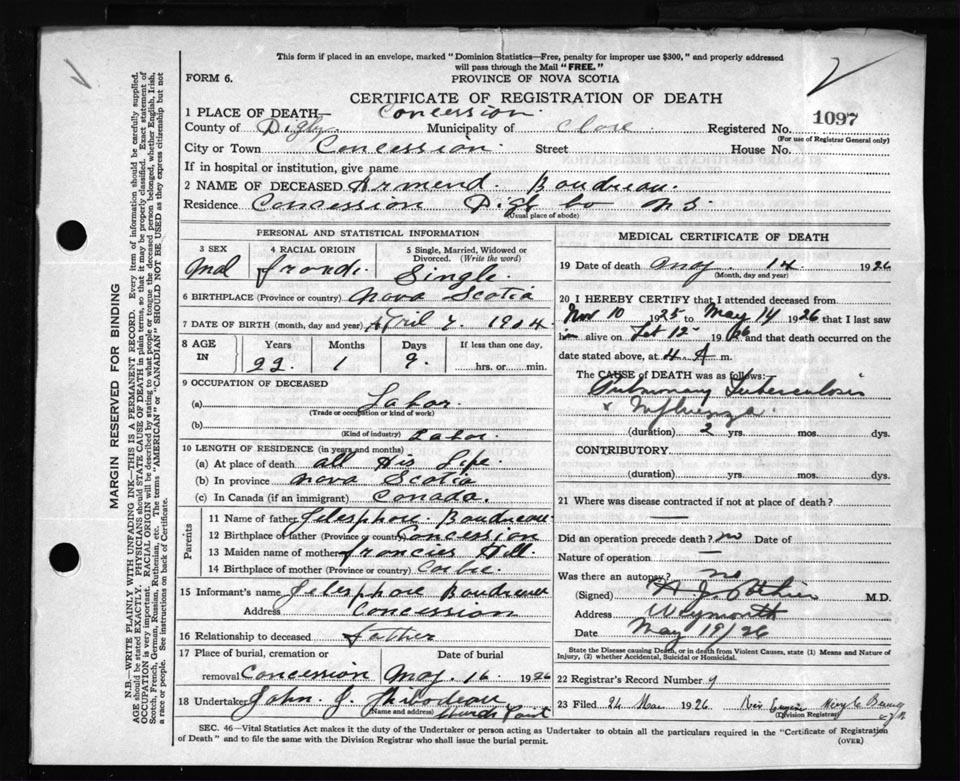 This form if placed in an envelope, marked "Dominion Statistics—Free, penalty for improper use $300," and properly addressed
will pass through the Mail "FREE."
FORM 6.
PROVINCE OF NOVA SCOTIA
CERTIFICATE OF REGISTRATION OF DEATH
1 PLACE OF DEATH— Concession.
County of Digby Municipality of Clare Registered No. 1097
(For use of Registrar General only)
City or Town Concession. Street House No.
If in hospital or institution, give name
2 NAME OF DECEASED Armend. Boudreau.
Residence Concession Digby Co N S
(Usual place of abode)
PERSONAL AND STATISTICAL INFORMATION
3 SEX 4 RACIAL ORIGIN 5 Single, Married, Widowed or Divorced. (Write the word)
Mal Single.
6 BIRTHPLACE (Province or country) Nova Scotia
7 DATE OF BIRTH (month, day and year) April 7. 1904.
8 AGE IN Years Months Days If less than one day,
22. 1 9. hrs. or min.
9 OCCUPATION OF DECEASED
(a) Labor.
(Trade or occupation or kind of work)
(b)
(Kind of industry) Labor.
10 LENGTH OF RESIDENCE (in years and months)
(a) At place of death all His Life.
(b) In province Nova Scotia
(c) In Canada (if an immigrant) Canada.
Parents
11 Name of father Telesphore Boudreau
12 Birthplace of father (Province or country) Concession
13 Maiden name of mother Hill.
14 Birthplace of mother (Province or country)
15 Informant's name Telesphore Boudreau
Address Concession
16 Relationship to deceased father
17 Place of burial, cremation or removal Date of burial
Concession May 16 1926
18 Undertaker John J. Thibodeau
(Name and address) Church Point
MEDICAL CERTIFICATE OF DEATH
19 Date of death May 14 1926
(Month, day and year)
20 I HEREBY CERTIFY that I attended deceased from
Nov 10 1925 to May 14 1926 that I last saw
him alive on 12 1926 and that death occurred on the
date stated above, at 4 A m.
The CAUSE OF DEATH was as follows:
Pulmonary Tuberculosis
& Influenza
(duration) 2 yrs. mos. dys.
CONTRIBUTORY
(duration) yrs. mos. dys.
21 Where was disease contracted if not at place of death?
Did an operation precede death? no Date of
Nature of operation —
Was there an autopsy? no
(Signed) M.D.
Address Weymouth
Date May 19/26
State the Disease causing Death, or in death from Violent Causes, state (1) Means and Nature of
Injury, (2) whether Accidental, Suicidal or Homicidal.
22 Registrar's Record Number 9
23 Filed 24 1926.
(Division Registrar)
SEC. 46—Vital Statistics Act makes it the duty of the Undertaker or person acting as Undertaker to obtain all the particulars required in the "Certificate of Registration
of Death" and to file the same with the Division Registrar who shall issue the burial permit. (OVER)
MARGIN RESERVED FOR BINDING
N.B.—WRITE PLAINLY WITH UNFADING INK—THIS IS A PERMANENT RECORD. Every item of information should be carefully supplied.
AGE should be stated EXACTLY. PHYSICIANS should STATE CAUSE OF DEATH in plain terms, so that it may be properly classified. Exact statement of
OCCUPATION is very important. RACIAL ORIGIN will be described by stating to what people or tongue the deceased person belonged, whether English, Irish,
Scotch, French, German, Russian, Ruthenian, etc. The terms "AMERICAN" or "CANADIAN" SHOULD NOT BE USED as they express citizenship but not
a race or people. See instructions on back of Certificate.